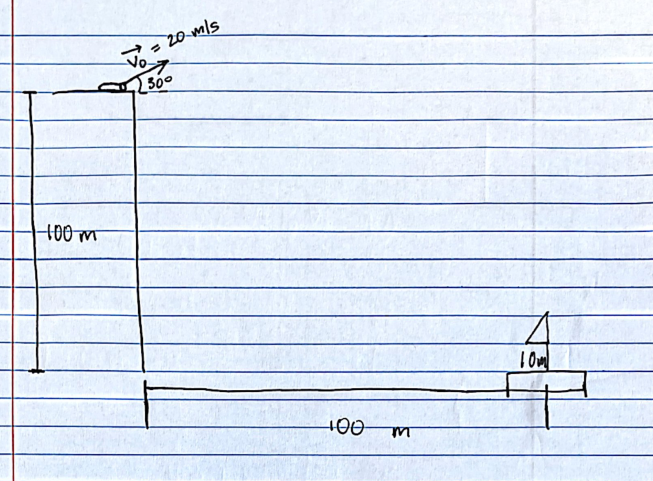 →v₀ = 20 m/s
30°
100 m
10m
100 m